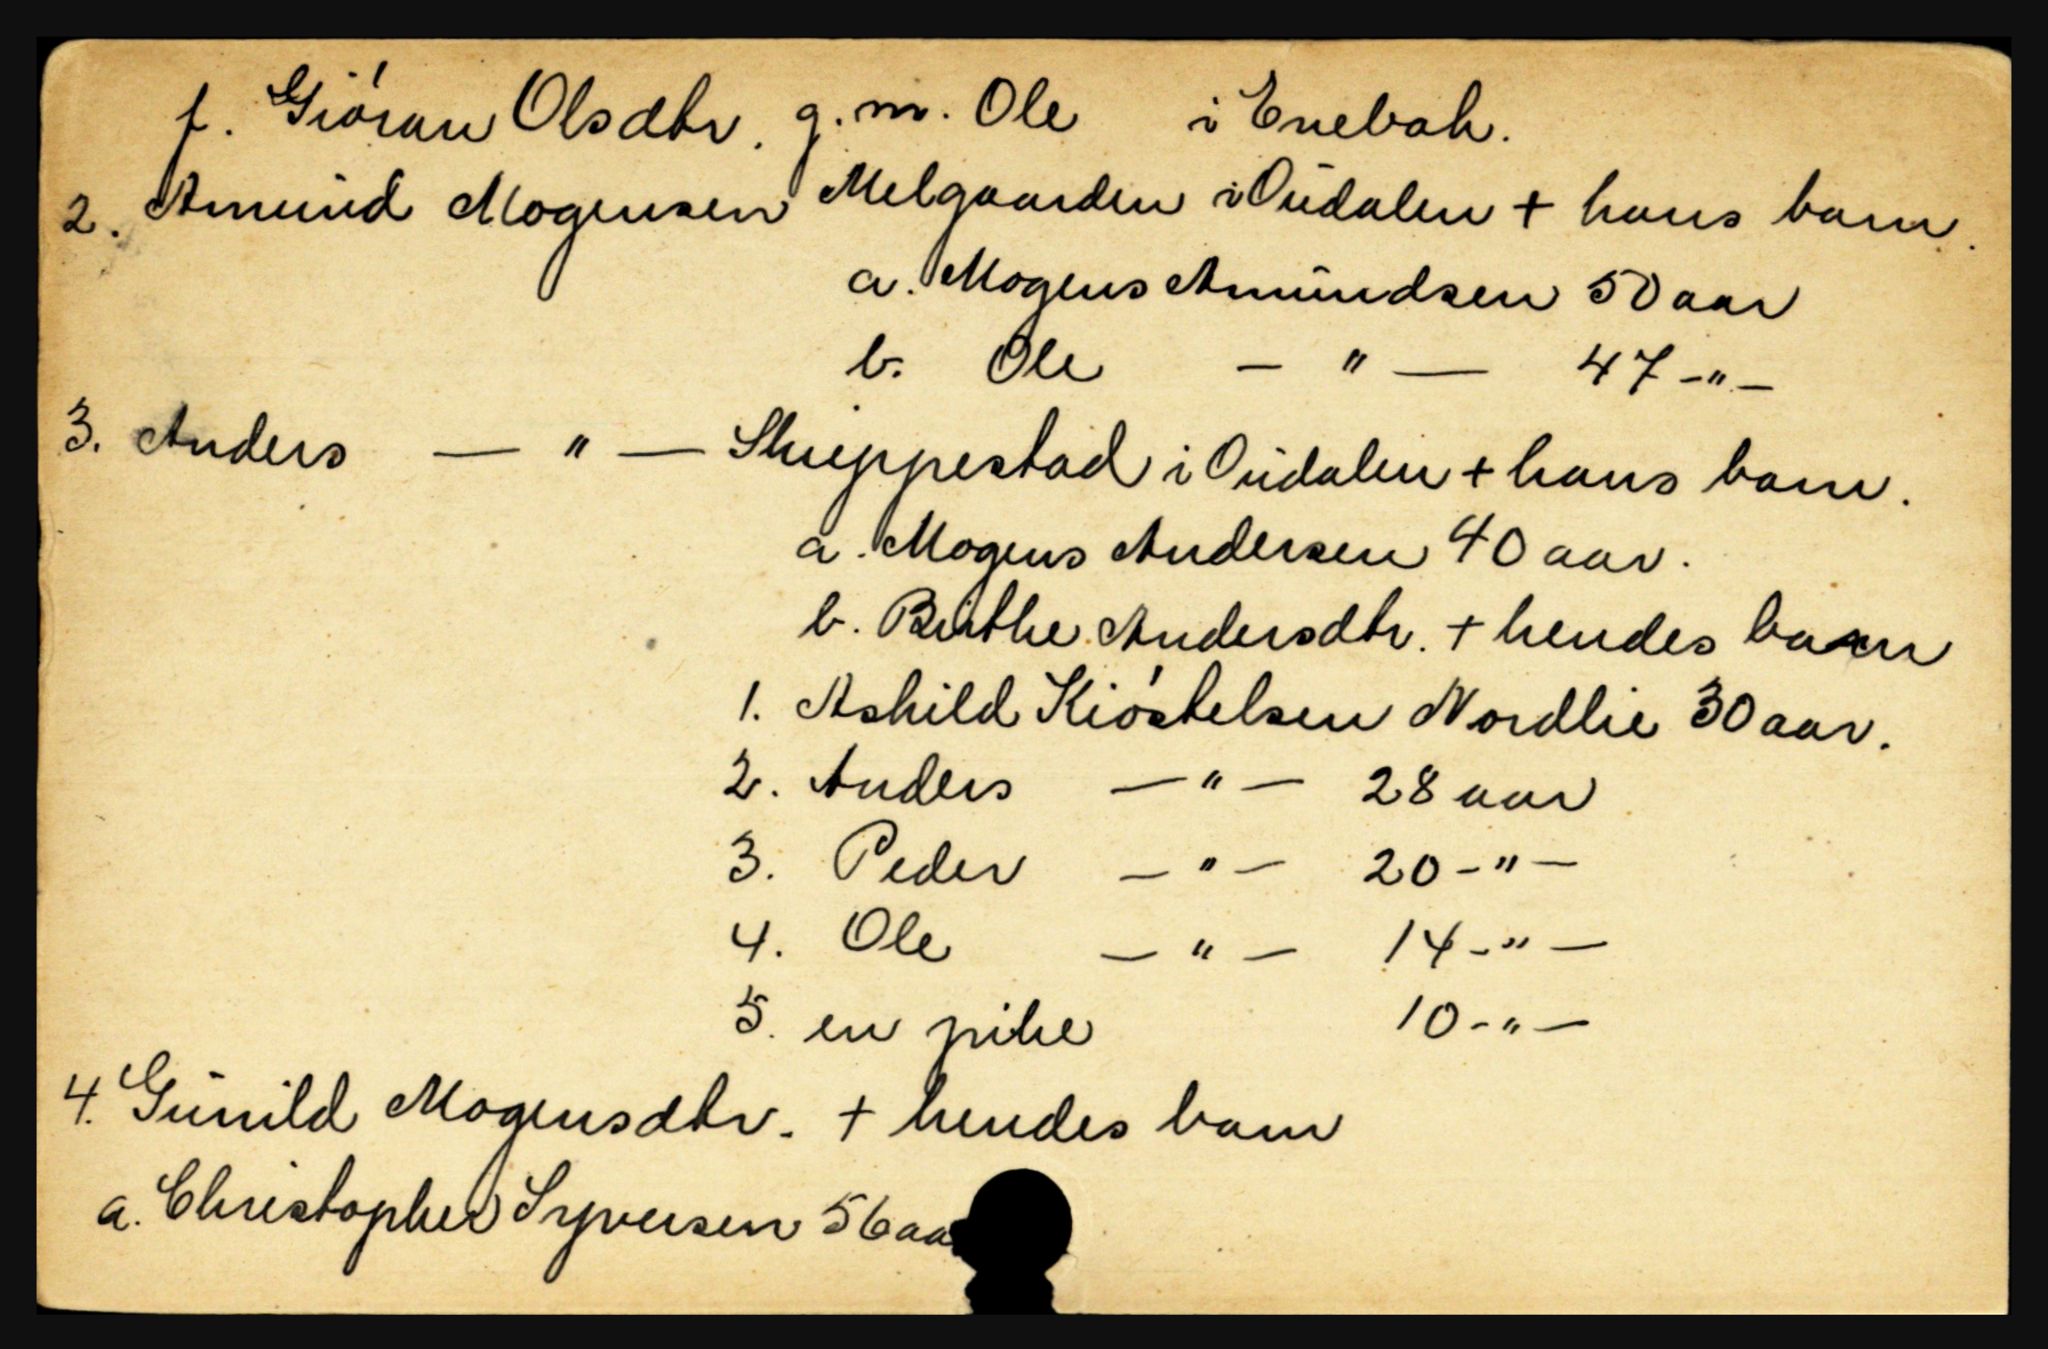 f. Gióran Olsdtr. g.m. Ole i Enebak.
2. Amŭnd Mogensen Melgaarden i Oŭdalen + hans barn.
a. Mogens Amŭndsen 50 aar
b. Ole — " — 47 -"-
3. Anders — " — Skieppestad i Oŭdalen + hans barn.
a. Mogens Andersen 40 aar.
b. Birthe Andersdtr. + hendes barn
1. Askild Kióstelsen Nordlie 30 aar.
2. Anders — " — 28 aar
3. Peder — " — 20 -"-
4. Ole — " — 14 -"-
5. en pike 10 -"-
4. Gŭnild Mogensdtr. + hendes barn
a. Christopher Syversen 56 aa